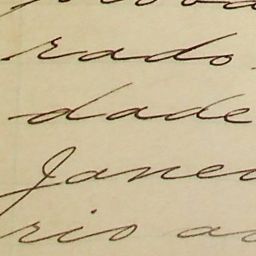 rado
dade
Janei
rio a